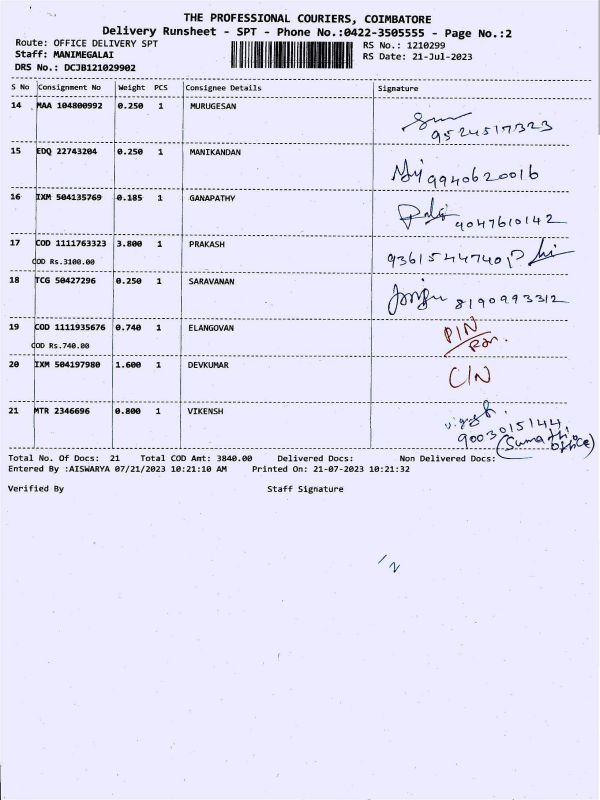 THE PROFESSIONAL COURIERS, COIMBATORE
Delivery Runsheet - SPT - Phone No.:0422-3505555 - Page No.:2
Route: OFFICE DELIVERY SPT
RS No.: 1210299
Staff: MANIMEGALAI
RS Date: 21-Jul-2023
DRS No.: DCJB121029902
S No Consignment No Weight PCS Consignee Details Signature
14 MAA 104800992 0.250 1 MURUGESAN
9524517323
15 EDQ 22743204 0.250 1 MANIKANDAN
9940620016
16 IXM 504135769 0.185 1 GANAPATHY
9047610142
17 COD 1111763323 3.800 1 PRAKASH
9361544740
COD Rs.3100.00
18 TCG 50427296 0.250 1 SARAVANAN
8190993312
19 COD 1111935676 0.740 1 ELANGOVAN
PIN
COD Rs.740.00
20 IXM 504197980 1.600 1 DEVKUMAR
C/N
21 MTR 2346696 0.800 1 VIKENSH
9003015144
(Sumathi office)
Total No. Of Docs: 21 Total COD Amt: 3840.00 Delivered Docs: Non Delivered Docs:
Entered By :AISWARYA 07/21/2023 10:21:10 AM Printed On: 21-07-2023 10:21:32
Verified By Staff Signature